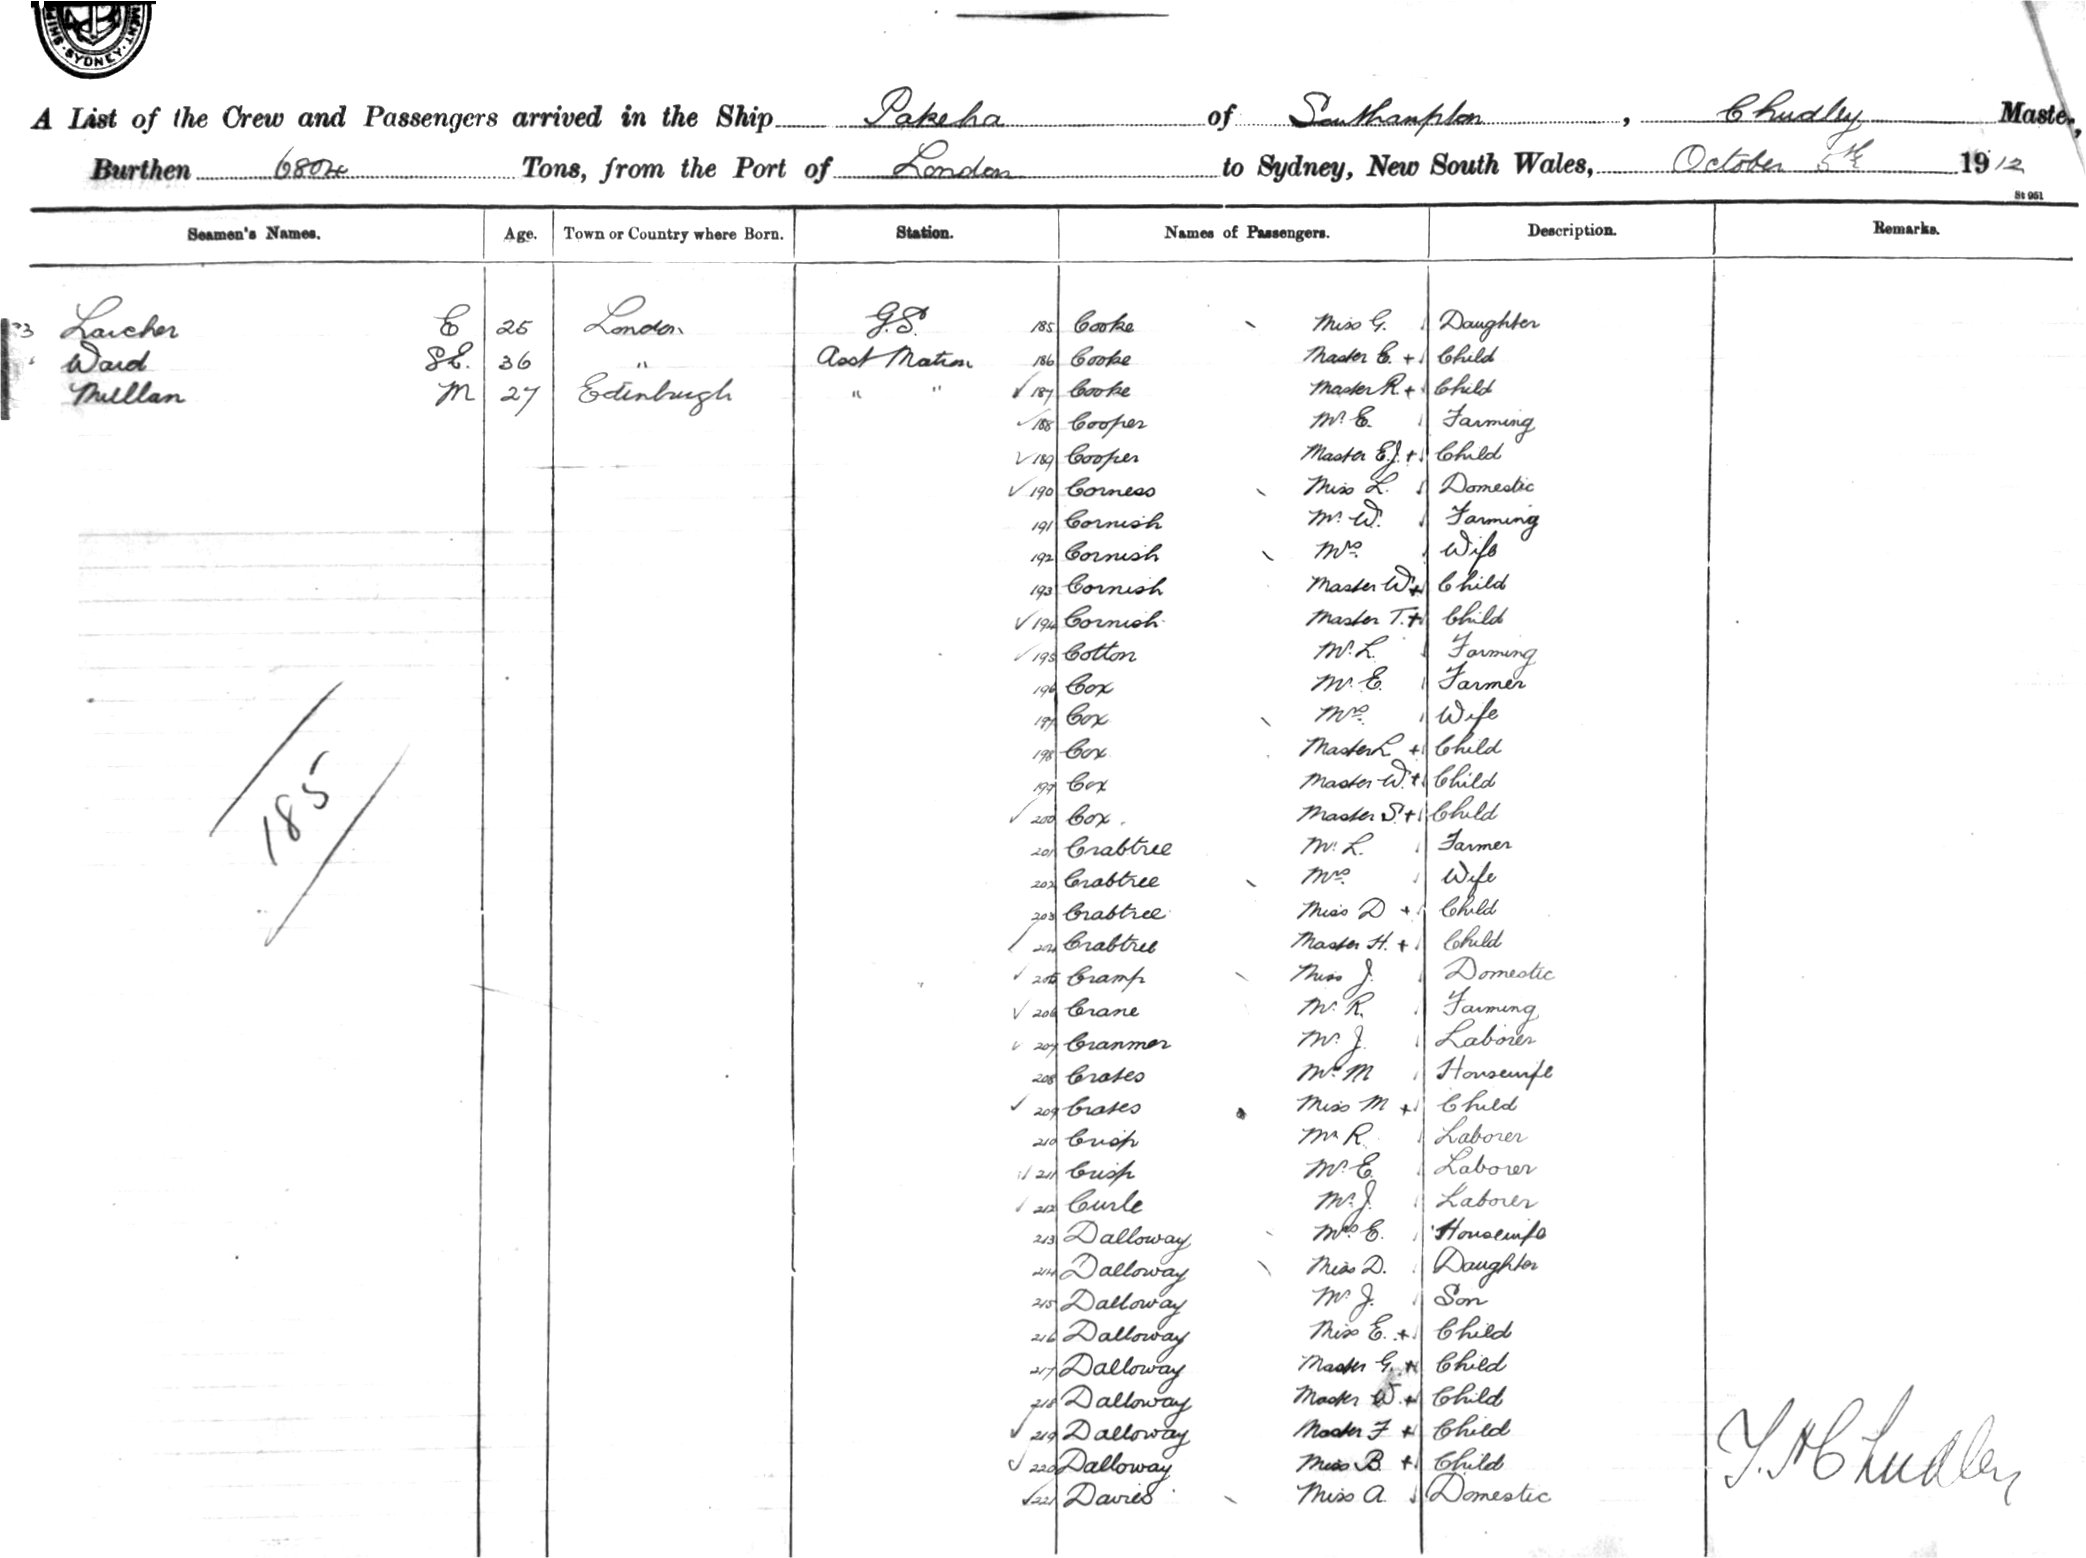 SYDNEY
A List of the Crew and Passengers arrived in the Ship Pakeha of Southampton, Chudley Master,
Burthen 6804 Tons, from the Port of London to Sydney, New South Wales, October 5th 1912
St 951
Seamen's Names. Age. Town or Country where Born. Station. Names of Passengers. Description. Remarks.
Larcher E 25 London G.S. 185 Cooke Miss G. Daughter
Ward S.E. 36 " Asst Matron 186 Cooke Master C. + Child
Millan M 27 Edinburgh " " 187 Cooke Master R. + Child
188 Cooper Mr. E. Farming
189 Cooper Master E.J. + Child
190 Corness Miss L. Domestic
191 Cornish Mr. W. Farming
192 Cornish Mrs. Wife
193 Cornish Master W. + Child
194 Cornish Master T. + Child
195 Cotton Mr. L. Farming
196 Cox Mr. E. Farmer
197 Cox Mrs. Wife
198 Cox Master L + Child
199 Cox Master W. + Child
200 Cox. Master S. + Child
185
201 Crabtree Mr. L. Farmer
202 Crabtree Mrs. Wife
203 Crabtree Miss D + Child
204 Crabtree Master H. + Child
205 Cramp Miss J. Domestic
206 Crane Mr. R. Farming
207 Cranmer Mr. J. Laborer
208 Crates Mrs M Housewife
209 Crates Miss M + Child
210 Crisp Mr R. Laborer
211 Crisp Mr. E. Laborer
212 Curle Mr. J. Laborer
213 Dalloway Mrs E. Housewife
214 Dalloway Miss D. Daughter
215 Dalloway Mr. J. Son
216 Dalloway Miss E. + Child
217 Dalloway Master G. + Child
218 Dalloway Master W. + Child
219 Dalloway Master F + Child
220 Dalloway Miss B. + Child
221 Davies Miss A. Domestic
Chudley